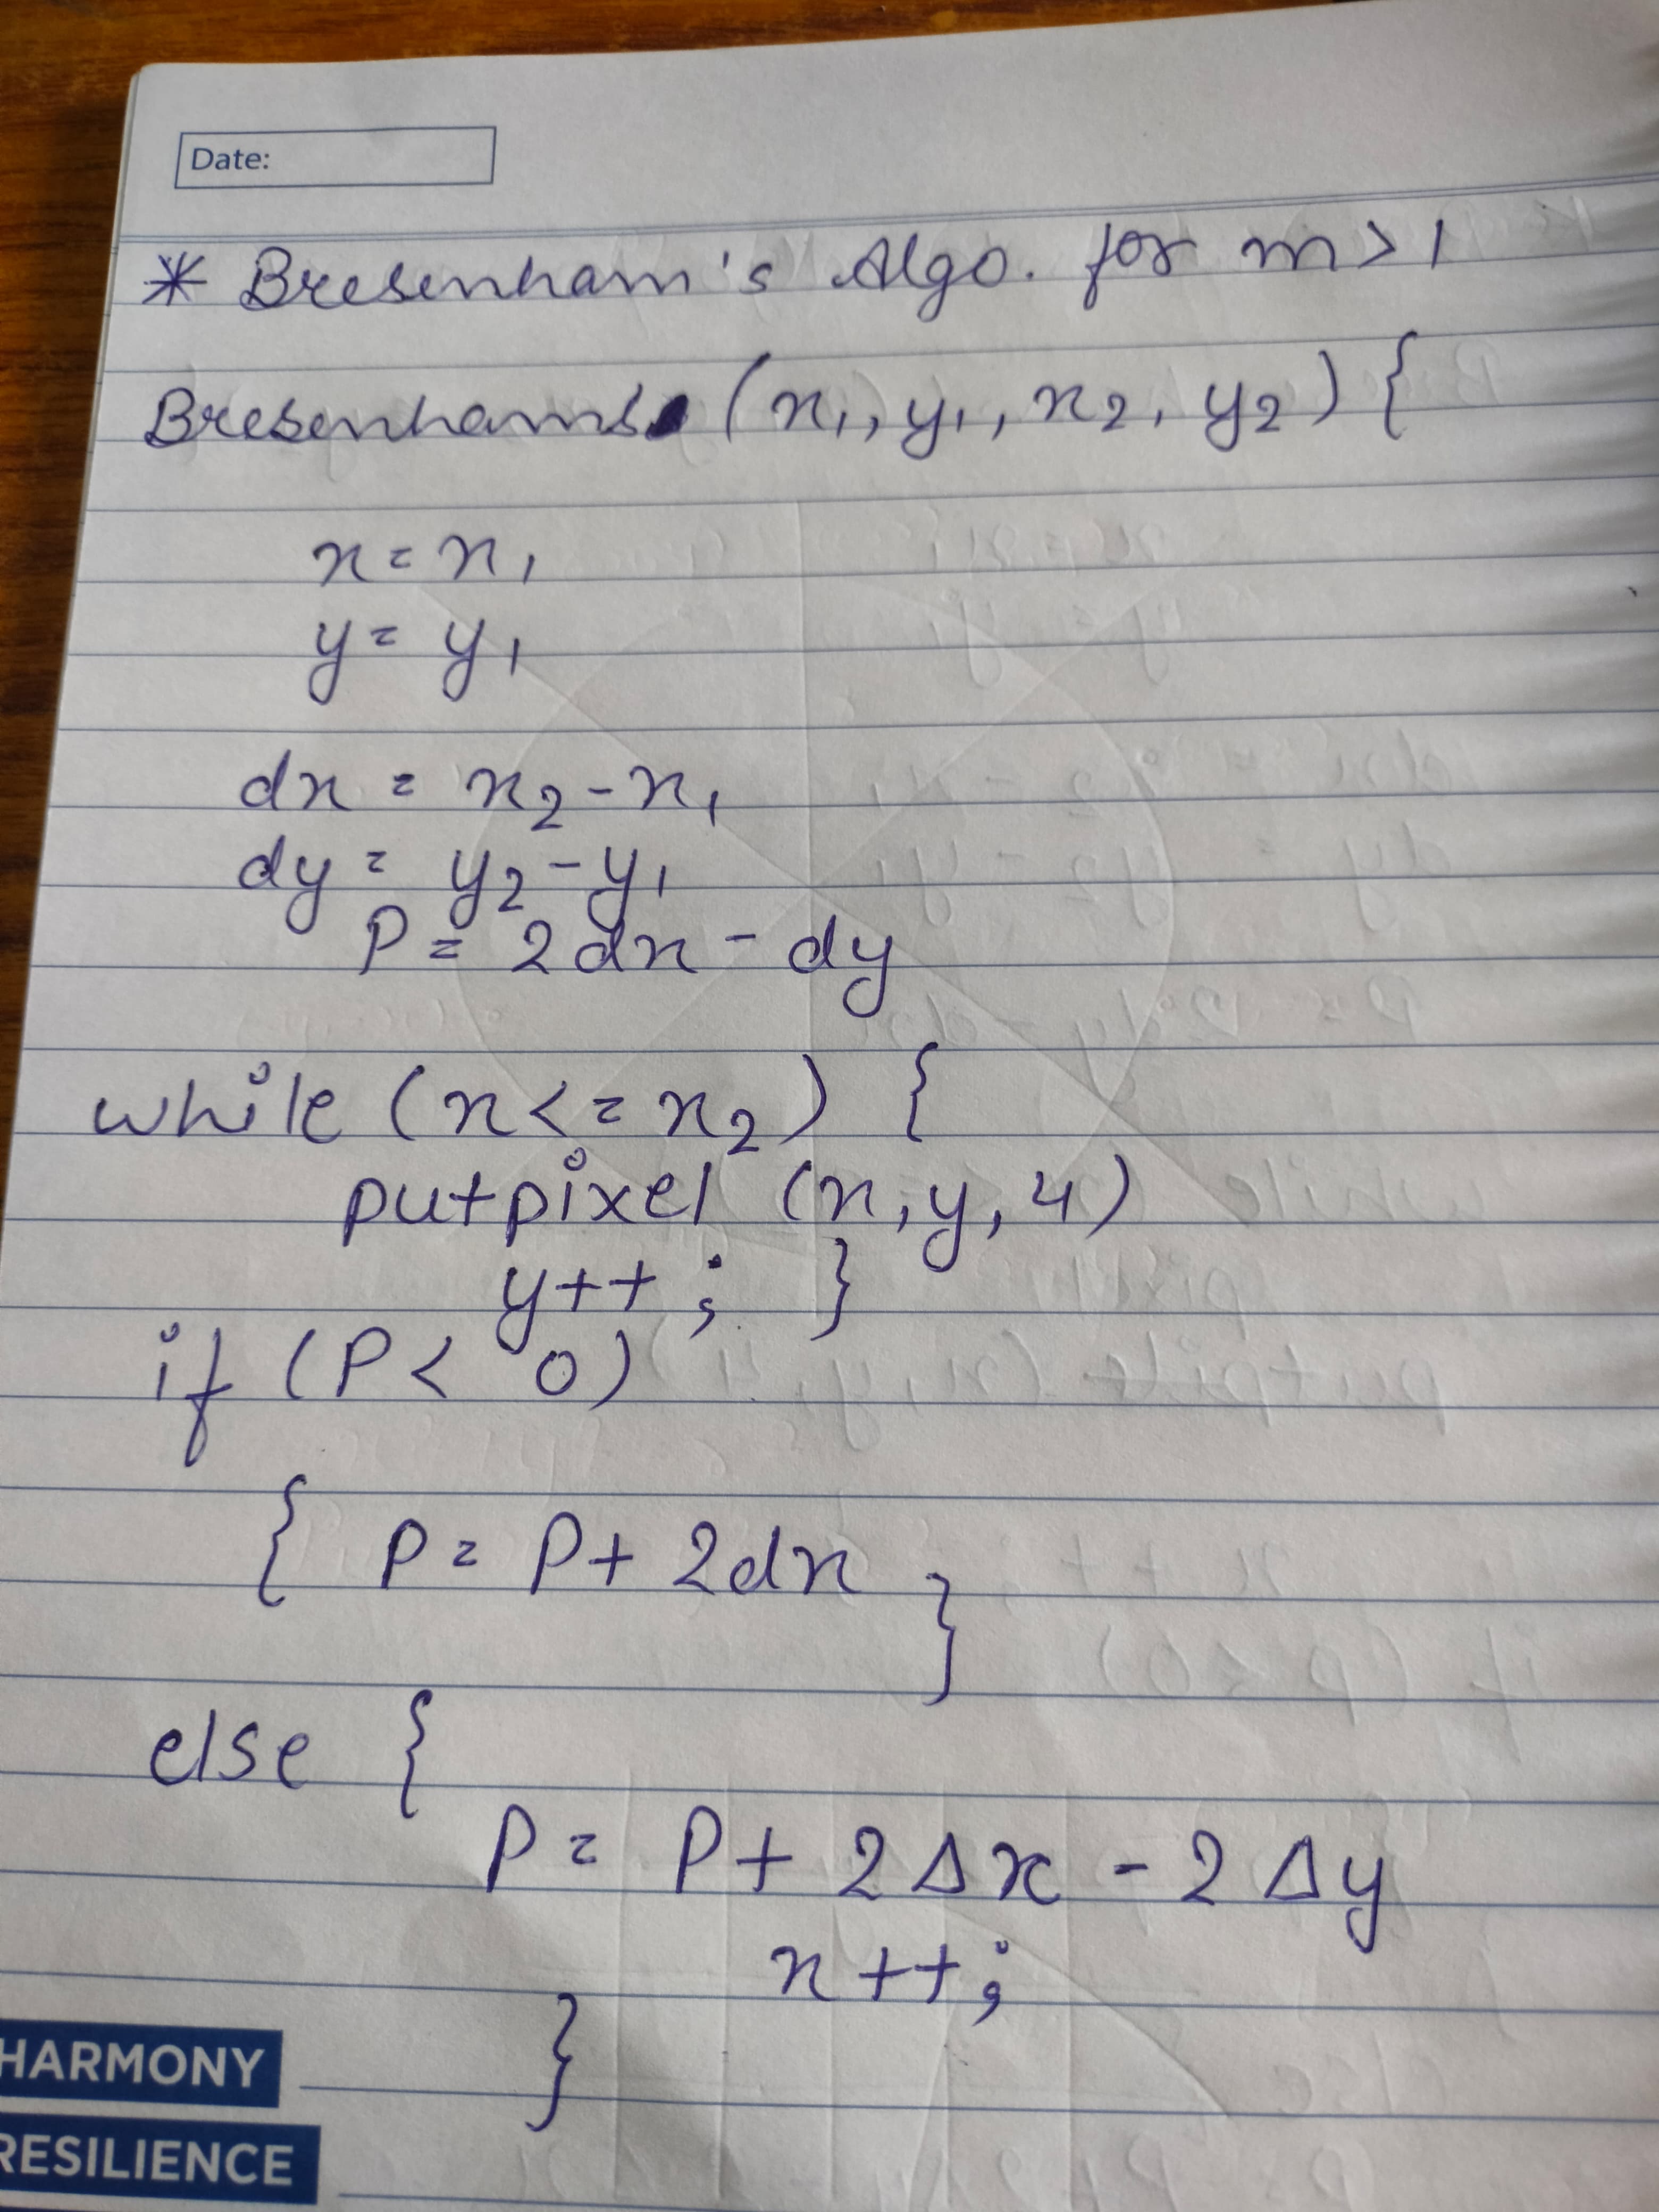 Date:
* Bresenham's Algo. for m > 1
Bresenhams (x1, y1, x2, y2) {
x = x1
y = y1
dx = x2 - x1
dy = y2 - y1
P = 2dx - dy
while (x <= x2) {
putpixel (x, y, 4)
y++ ; }
if (P < 0)
{ P = P + 2dx }
else {
P = P + 2Δx - 2Δy
x++;
}
HARMONY
RESILIENCE